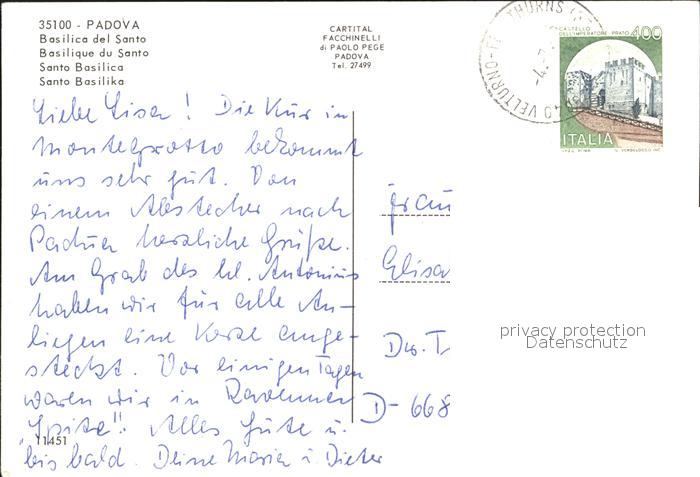 35100 - PADOVA
Basilica del Santo
Basilique du Santo
Santo Basilica
Santo Basilika
CARTITAL
FACCHINELLI
di PAOLO PEGE
PADOVA
Tel. 27499
CASTELLO
DELL'IMPERATORE - PRATO
400
ITALIA
VELTURNO-
THURNS
Liebe Lisa! Die Kur in
Montegrotto bekommt
uns sehr gut. Von
einem Abstecher nach
Padua herzliche Grüße.
Am Grab des hl. Antonius
haben wir für alle An-
liegen eine Kerze ange-
steckt. Vor einigen Tagen
waren wir in Ravenna
„Spitze“! Alles Gute u.
bis bald. Deine Maria u. Dieter
11451
Frau
Elisa
D-668
privacy protection
Datenschutz